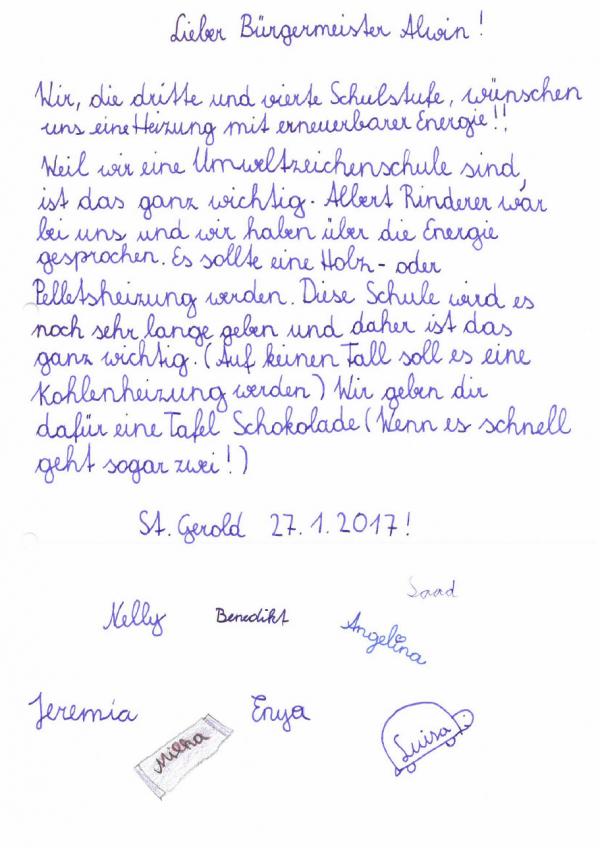 Lieber Bürgermeister Alwin!
Wir, die dritte und vierte Schulstufe, wünschen
uns eine Heizung mit erneuerbarer Energie!!
Weil wir eine Umweltzeichenschule sind,
ist das ganz wichtig. Albert Rinderer war
bei uns und wir haben über die Energie
gesprochen. Es sollte eine Holz- oder
Pelletsheizung werden. Diese Schule wird es
noch sehr lange geben und daher ist das
ganz wichtig. (Auf keinen Fall soll es eine
Kohlenheizung werden) Wir geben dir
dafür eine Tafel Schokolade (Wenn es schnell
geht sogar zwei!)
St. Gerold 27.1.2017!
Saad
Nelly Benedikt Angelina
Jeremia Enya Luisa
Milka